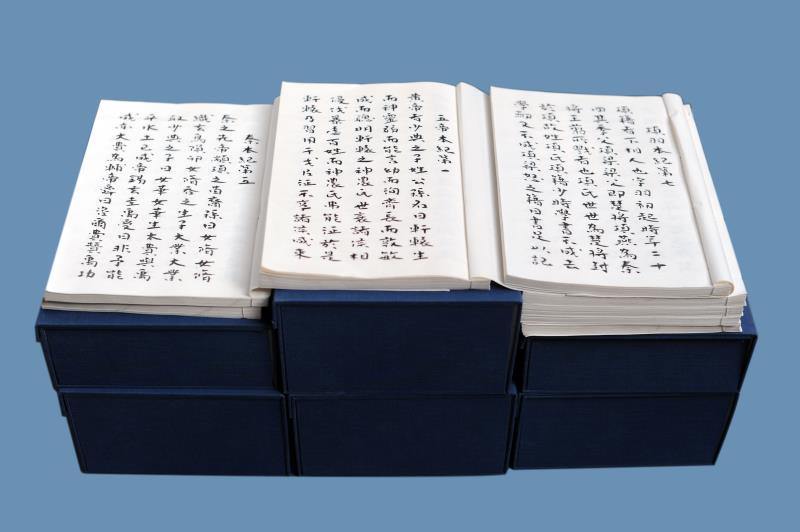 項羽本紀第七
項籍者下相人也字羽初起時年二十
四其季父項梁梁父即楚將項燕為秦
將王翦所戮者也項氏世世為楚將封
於項故姓項氏項籍少時學書不成去
學劍又不成項梁怒之籍曰書足以記
五帝本紀第一
黃帝者少典之子姓公孫名曰軒轅生
而神靈弱而能言幼而徇齊長而敦敏
成而聰明軒轅之神農氏世衰諸侯相
侵伐暴虐百姓而神農氏弗能征於是
軒轅乃習用干戈以征不享諸侯咸來
秦本紀第五
秦之先帝顓頊之苗裔孫曰女脩女脩
織玄鳥隕卵女脩吞之生子大業大業
取少典之子曰女華女華生大費與禹
平水土已成帝錫玄圭禹受曰非予能
成亦大費為輔帝舜曰咨爾費贊禹功